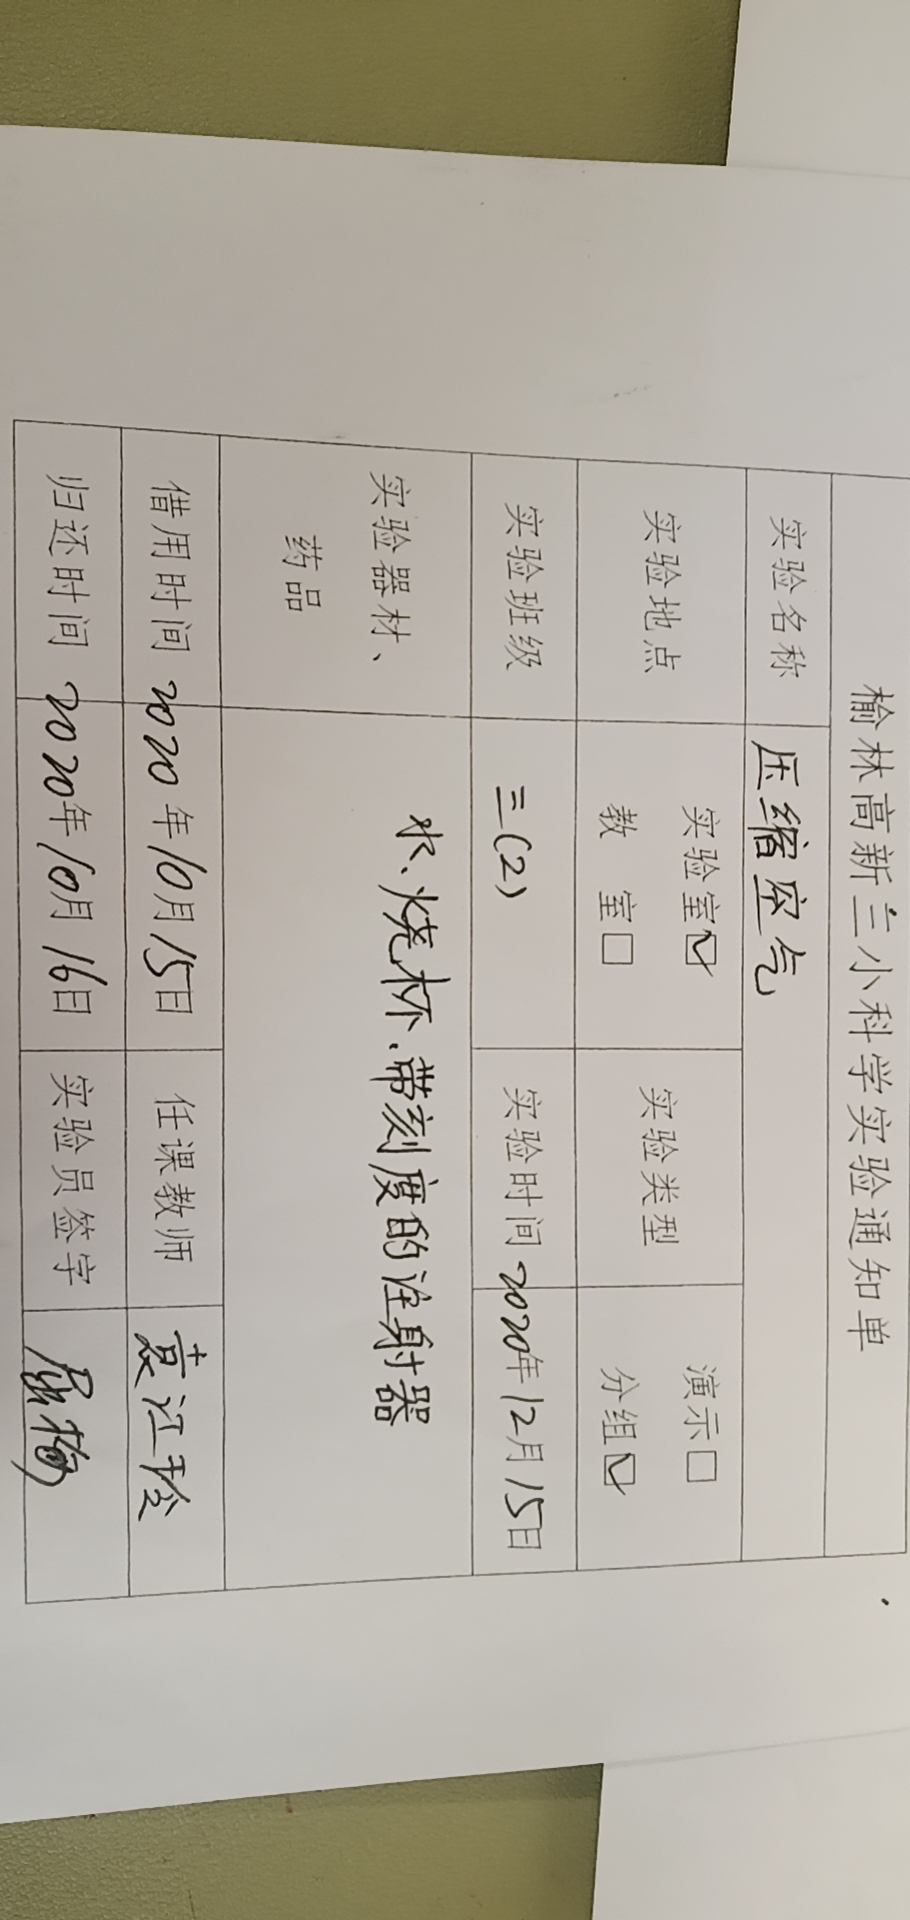 榆林高新三小科学实验通知单
实验名称 压缩空气
实验地点 实验室☑ 教 室□ 实验类型 演示□ 分组☑
实验班级 三(2) 实验时间 2020年12月15日
实验器材、药品 水、烧杯、带刻度的注射器
借用时间 2020年10月15日 任课教师 袁江玲
归还时间 2020年10月16日 实验员签字